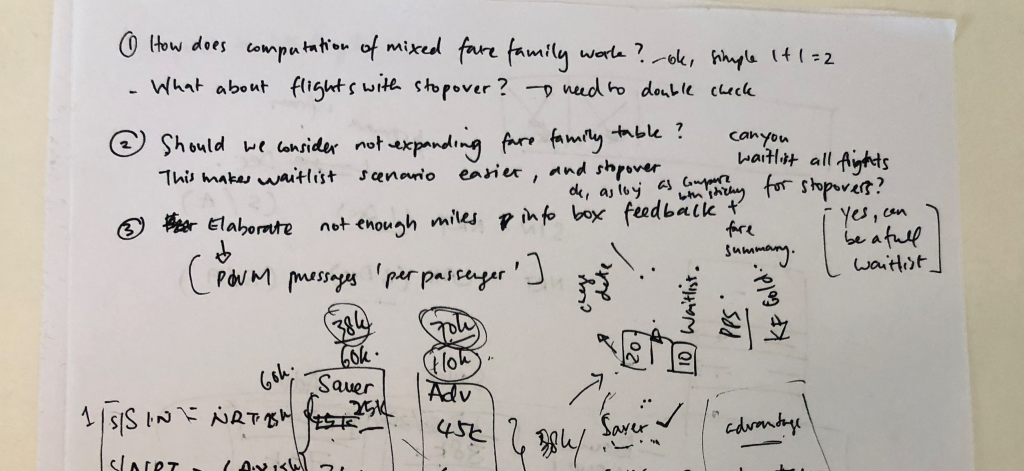 ① How does computation of mixed fare family work? - ok, simple 1+1=2
- What about flights with stopover? → need to double check
② Should we consider not expanding fare family table?
This makes waitlist scenario easier, and stopover
ok, as long as compare btn sticky + fare summary.
can you waitlist all flights
for stopovers?
[yes, can
be a full
waitlist]
③ Elaborate not enough miles info box feedback
[messages 'per passenger']
date
20
10
Waitlist.
PPS
KF Gold
38k
70k
60k.
110k
60k.
Saver
Adv
1 SIN - NRT 25k
25k
45k
38k
Saver ✓
advantage